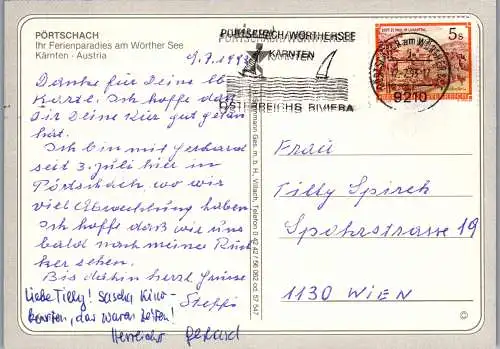 PÖRTSCHACH
Ihr Ferienparadies am Wörther See
Kärnten - Austria
9.7.199
Danke für Deine lb
Karte. Ich hoffe daß
Dir Deine Kur gut getan
hat.
Ich bin mit Gerhard
seit 3. Juli hier in
Pörtschach, wo wir
viel Abwechslung haben
Ich hoffe daß wir uns
bald nach meiner Rück
kehr sehen.
Bis dahin herzl. Grüsse
Steffi
Liebe Tilly! Sascha Kino-
karten, das waren Zeiten!
Herzlichst Gerhard
PÖRTSCHACH/WÖRTHERSEE
KÄRNTEN
ÖSTERREICHS RIVIERA
5 S
9210
Ges. m. b. H., Villach, Telefon 0 42 42 / 56 062 od. 57 547
Frau
Tilly Spirch
Spohrstrasse 19
1130 WIEN
©